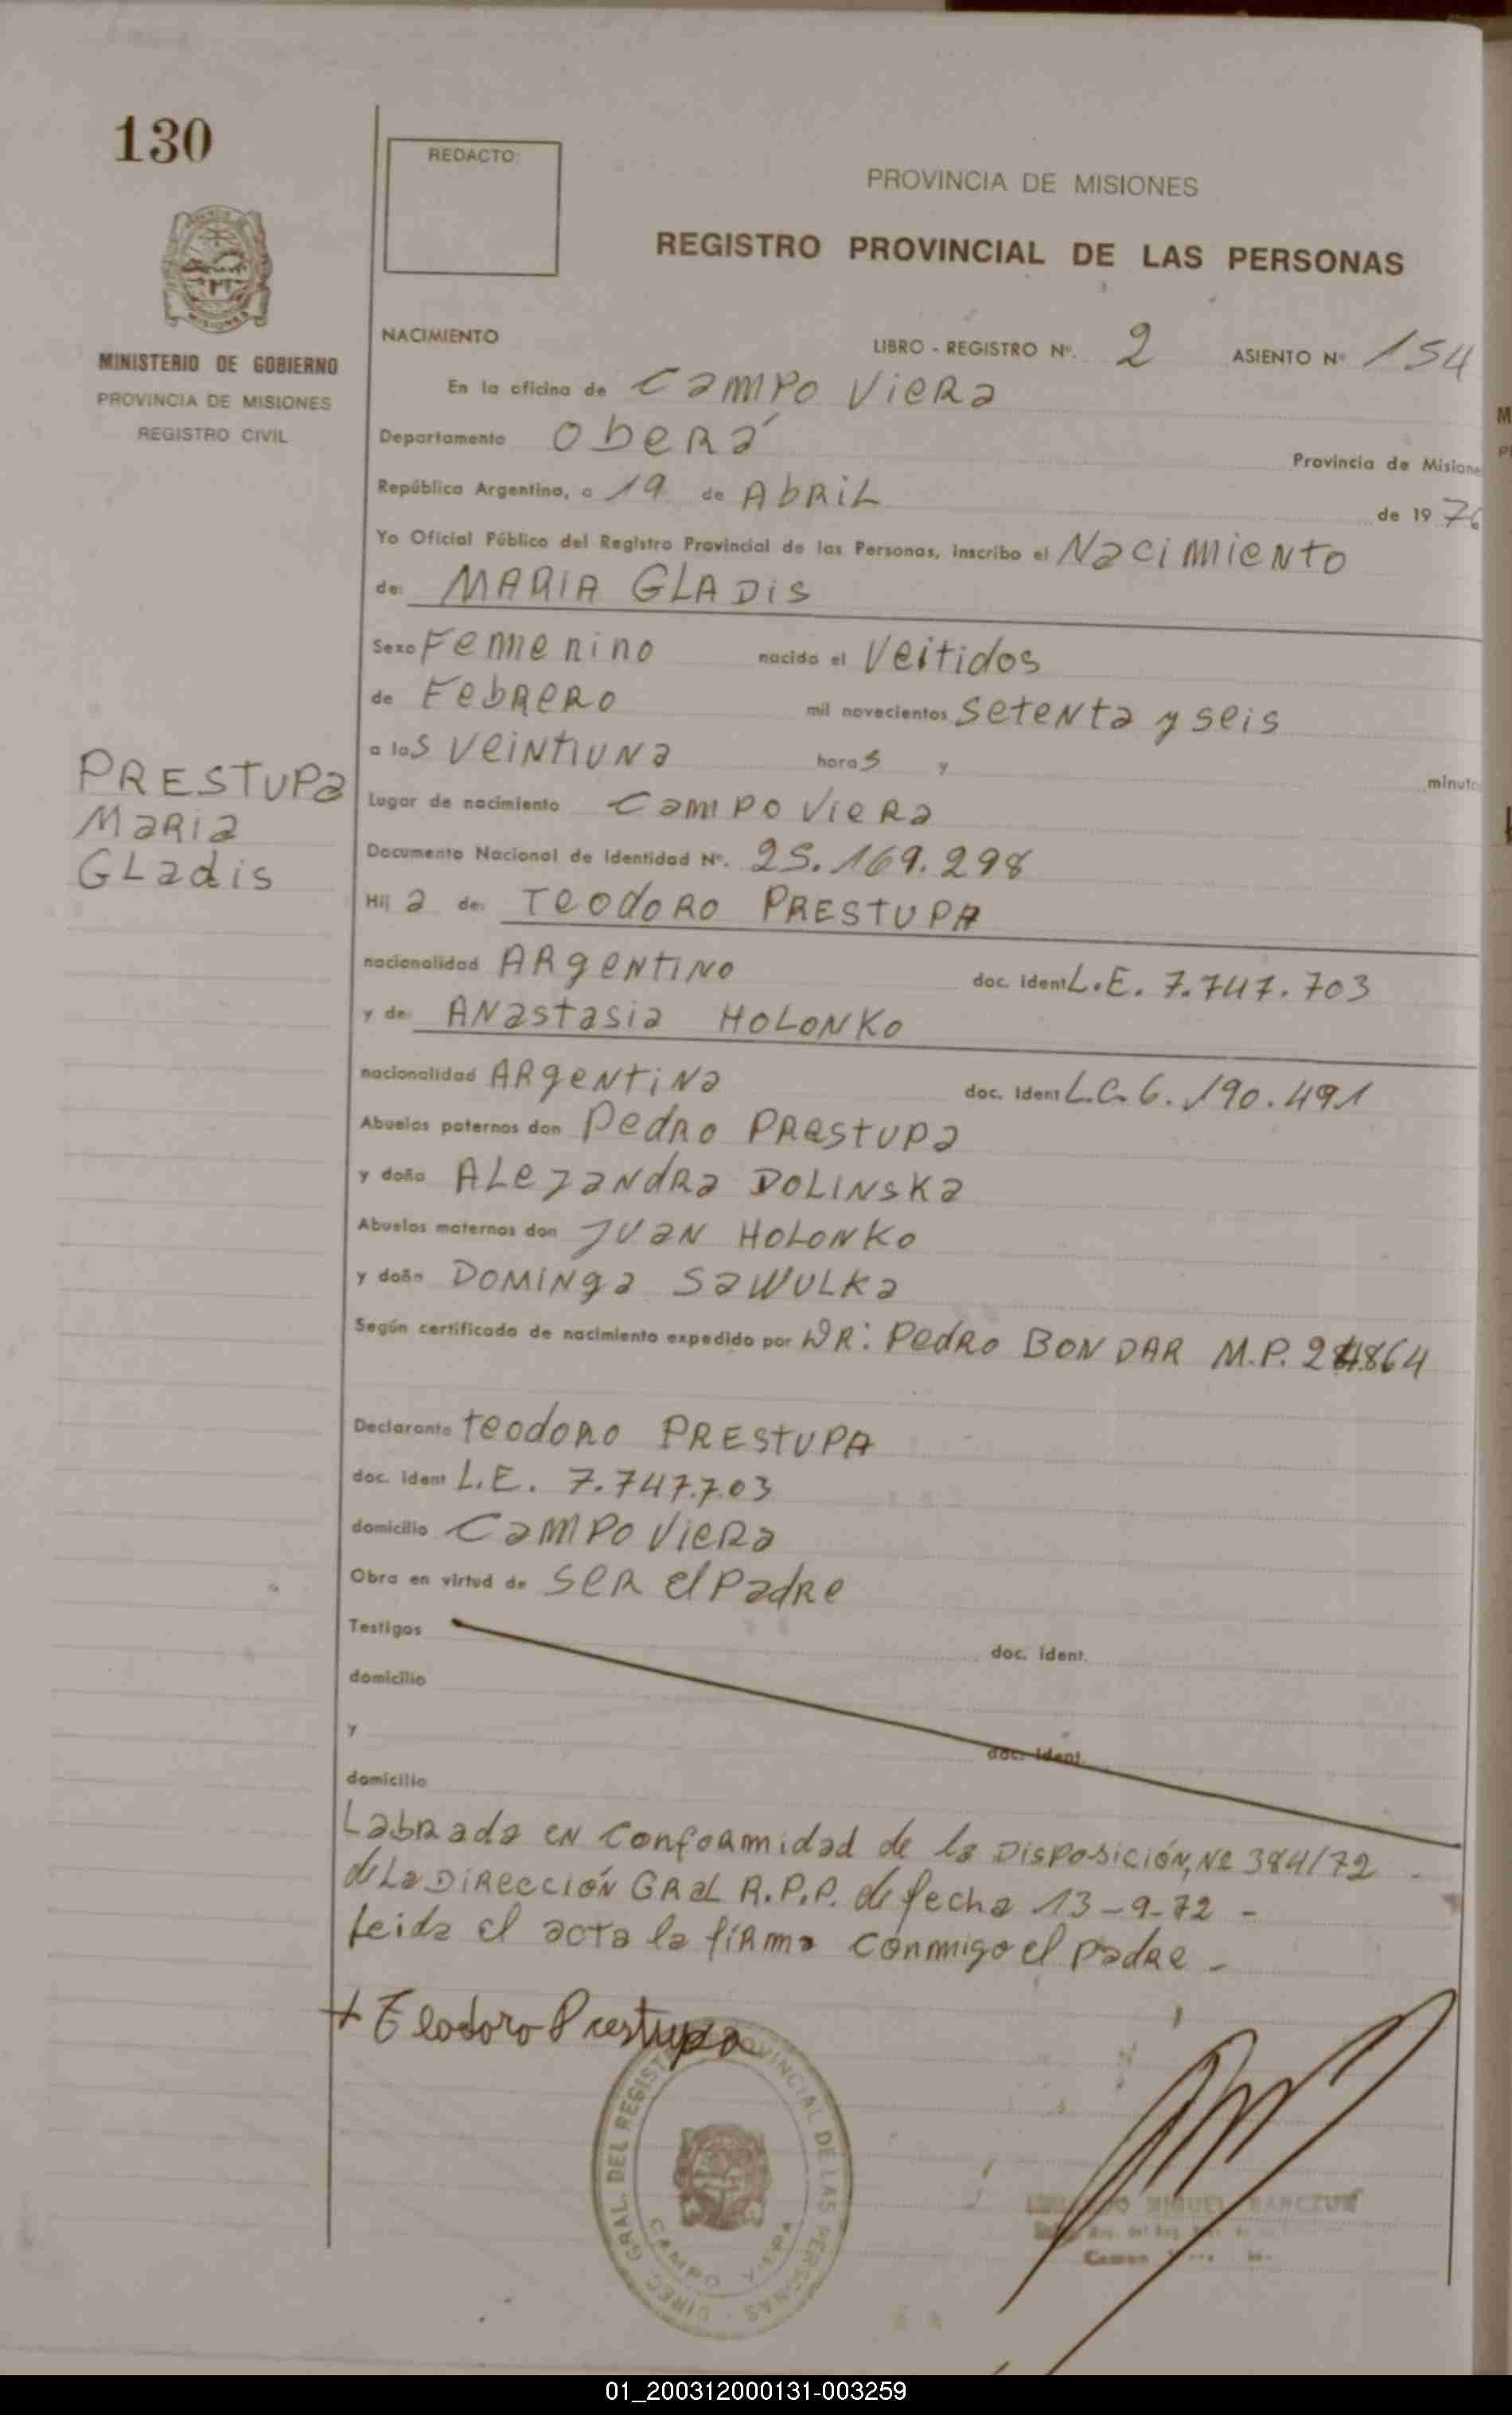 130
REDACTO:
PROVINCIA DE MISIONES
REGISTRO PROVINCIAL DE LAS PERSONAS
MISIONES
MINISTERIO DE GOBIERNO
PROVINCIA DE MISIONES
REGISTRO CIVIL
NACIMIENTO LIBRO - REGISTRO Nº. 2 ASIENTO Nº 154
En la oficina de CAMPO VIERA
Departamento OBERÁ Provincia de Misione
República Argentina, a 19 de ABRIL de 1976
Yo Oficial Público del Registro Provincial de las Personas, inscribo el NACIMIENTO
de: MARIA GLADIS
Sexo Femenino nacido el Veitidos
de FEBRERO mil novecientos setenta y seis
a las veintiuna horas y minuto
PRESTUPA
MARIA
GLadis
Lugar de nacimiento CAMPO VIERA
Documento Nacional de Identidad Nº. 25.169.298
Hij a de: TEODORO PRESTUPA
nacionalidad ARGENTINO doc. ident L.E. 7.747.703
y de: ANASTASIA HOLONKO
nacionalidad ARGENTINA doc. ident L.C. 6.190.491
Abuelos paternos don Pedro PRESTUPA
y doña ALEJANDRA DOLINSKA
Abuelos maternos don JUAN HOLONKO
y doña DOMINGA SAWULKA
Según certificado de nacimiento expedido por DR: Pedro BONDAR M.P.
Declarante teodoro PRESTUPA
doc. ident L.E. 7.747.703
domicilio CAMPO VIERA
Obra en virtud de ser el Padre
Testigos doc. ident.
domicilio
y doc. ident.
domicilio
Labrada en conformidad de la Disposición, Nº 384/72
de La Dirección GRAL R.P.P. de fecha 13-9-72 -
Leida el acta la firma conmigo el padre -
+ Teodoro Prestupa
DIREC. GRAL. DEL REGISTRO PROVINCIAL DE LAS PERSONAS
CAMPO VIERA
MIGUEL
01_200312000131-003259